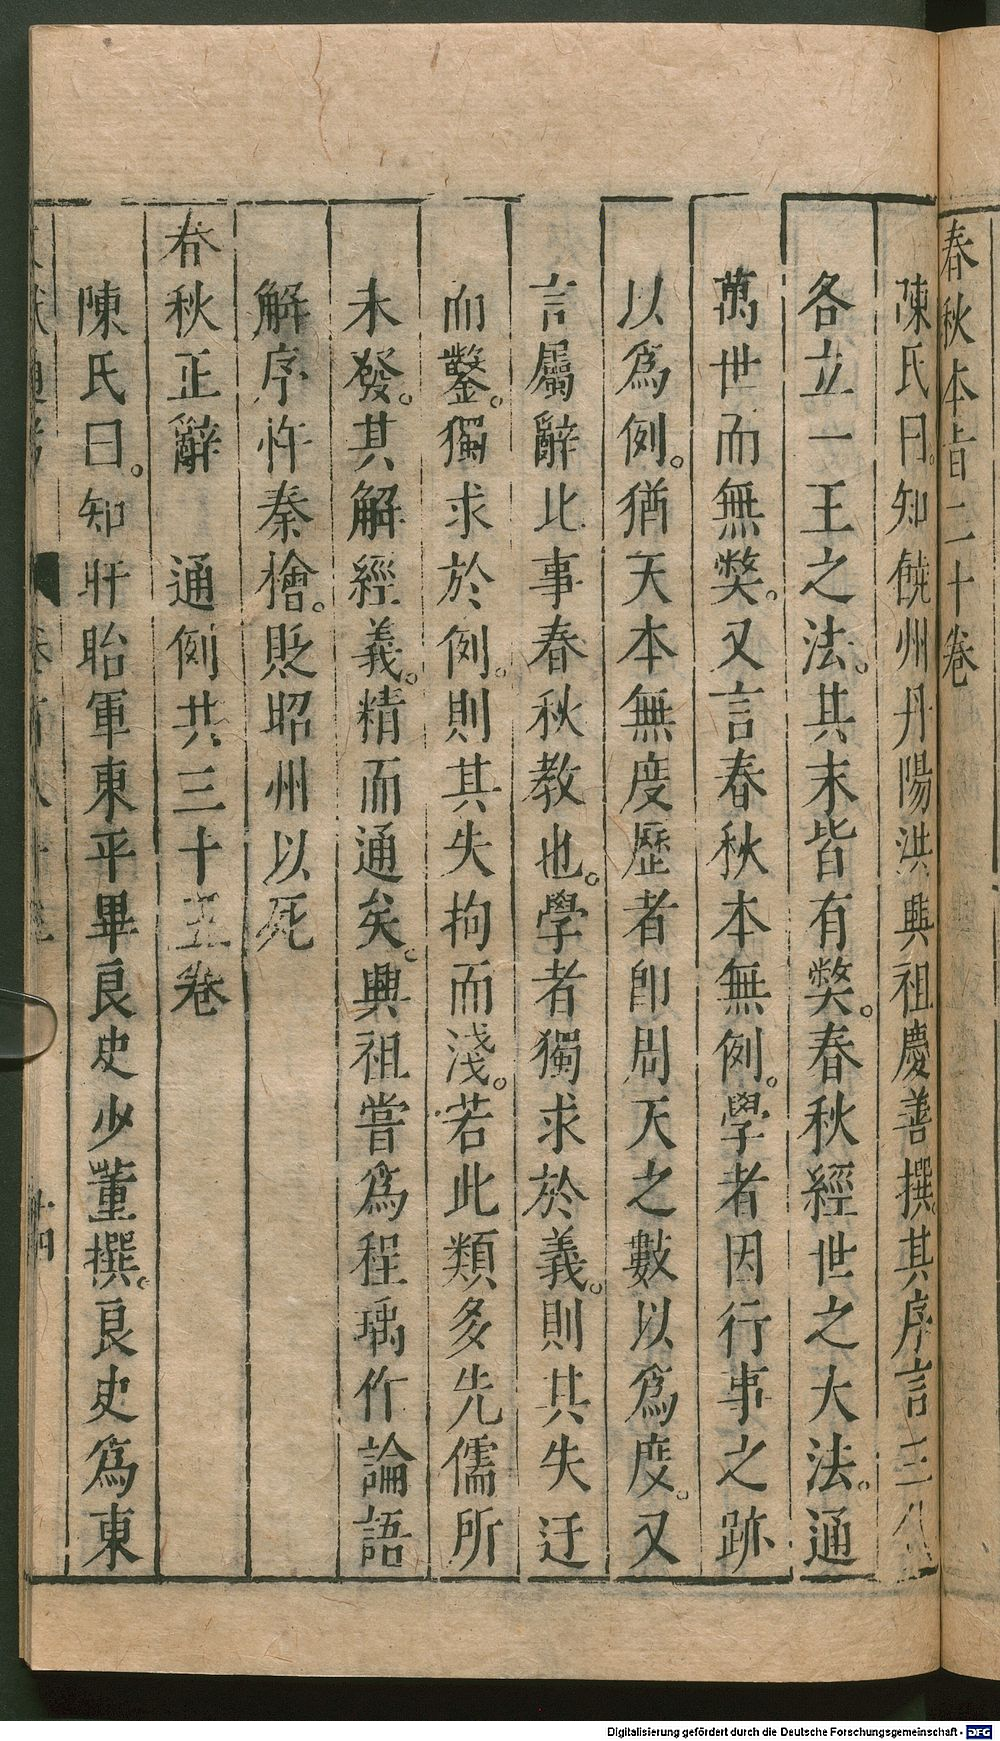 春秋本旨二十卷
陳氏曰。知饒州丹陽洪興祖慶善撰。其序言三代
各立一王之法。其末皆有獘。春秋經世之大法。通
萬世而無獘。又言春秋本無例。學者因行事之跡
以爲例。猶天本無度歷者卽周天之數以爲度。又
言屬辭比事春秋教也。學者獨求於義。則其失迂
而鑿。獨求於例。則其失拘而淺。若此類多先儒所
未發。其解經義。精而通矣。興祖嘗爲程瑀作論語
解序忤秦檜。貶昭州以死
春秋正辭　通例共三十五卷
陳氏曰。知盱眙軍東平畢良史少董撰。良史爲東
十四
Digitalisierung gefördert durch die Deutsche Forschungsgemeinschaft - DFG